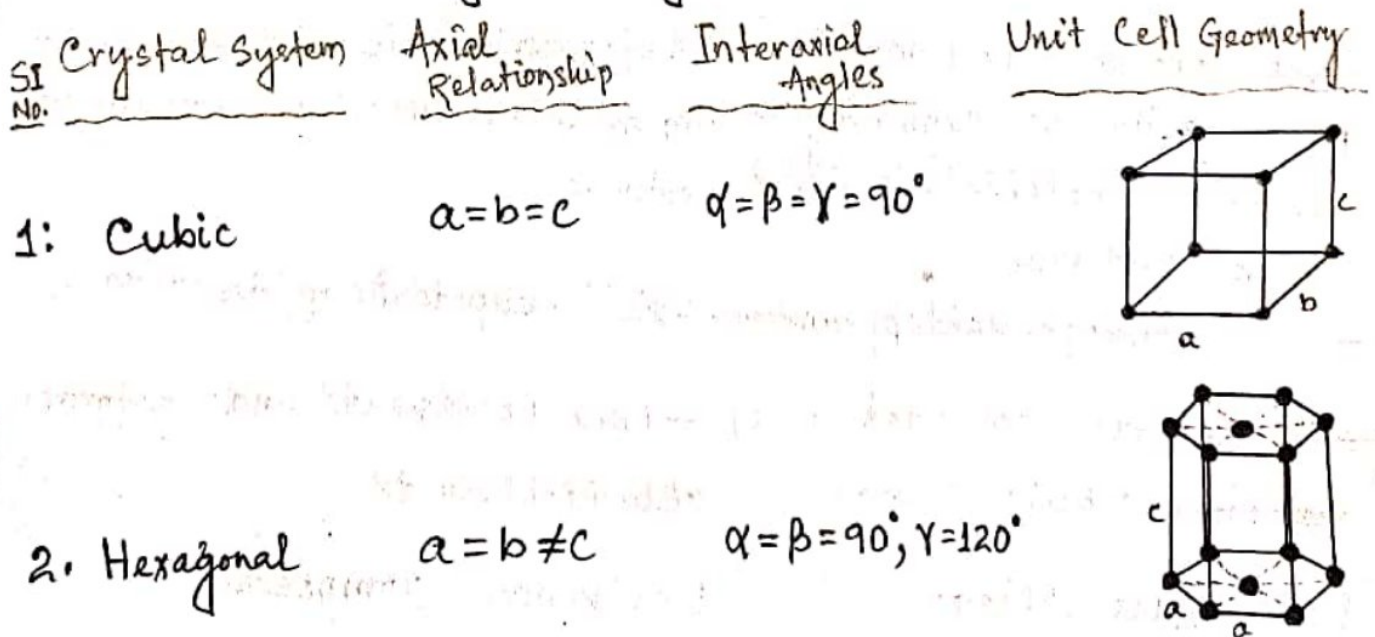 SI No. Crystal System Axial Relationship Interaxial Angles Unit Cell Geometry
1: Cubic a=b=c α=β=γ=90°
c
b
a
2. Hexagonal a=b≠c α=β=90°, γ=120°
c
a
a